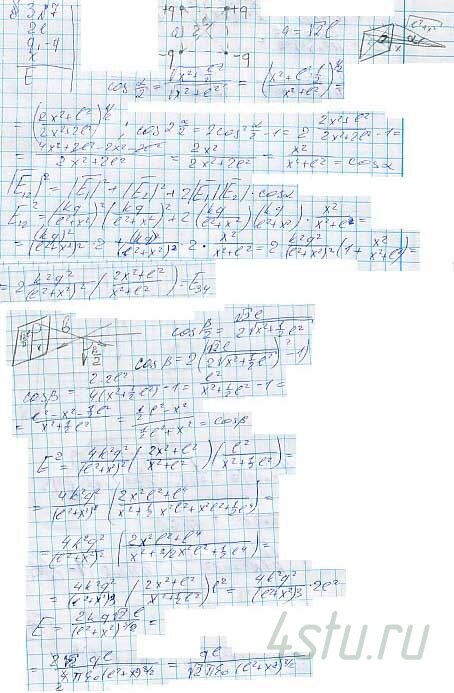 3.17
2l
q, -q
x
E
+q +q
a 2l
-q -q
a = √2 l
cos α/2 = √(x² + l²/2) / √(x² + l²) = ((x² + l²·1/2)/(x² + l²))^(1/2) =
= ((2x² + l²)/(2x² + 2l²))^(1/2); cos 2 α/2 = 2cos² α/2 - 1 = 2 (2x² + l²)/(2x² + 2l²) - 1 =
= (4x² + 2l² - 2x² - 2l²)/(2x² + 2l²) = 2x²/(2x² + 2l²) = x²/(x² + l²) = cos α
|E₁₂|² = |E₁|² + |E₂|² + 2|E₁||E₂| · cos α
E₁₂² = (kq/(l² + x²))² + (kq/(l² + x²))² + 2 (kq/(l² + x²)) (kq/(l² + x²)) · x²/(x² + l²) =
= (kq)²/(l² + x²)² · 2 + (kq)²/(l² + x²)² · 2 · x²/(x² + l²) = 2 k²q²/(l² + x²)² (1 + x²/(x² + l²)) =
= 2 k²q²/(l² + x²)² ((2x² + l²)/(x² + l²)) = E₃₄
β/2
cos β/2 = √2 l / (2√(x² + ½ l²))
cos β = 2(√2 l / (2√(x² + ½ l²)))² - 1)
cos β = 2·2l²/(4(x² + ½ l²)) - 1 = l²/(x² + ½ l²) - 1 =
= (l² - x² - ½ l²)/(x² + ½ l²) = (½ l² - x²)/(½ l² + x²) = cos β
E² = 4k²q²/(l² + x²)² ((2x² + l²)/(x² + l²)) (l²/(x² + ½ l²)) =
= 4k²q²/(l² + x²)² ((2x²l² + l⁴)/(x⁴ + ½ x²l² + x²l² + ½ l⁴)) =
= 4k²q²/(l² + x²)² =
= 4k²q²/(l² + x²)³ ((2x² + l²)/(x² + ½ l²)) l² = 4k²q²/(l² + x²)³ · 2l²
E = 2kq√2 l/(l² + x²)^(3/2) =
= ql/(√2 π ε₀ (l² + x²)^(3/2))
4stu.ru